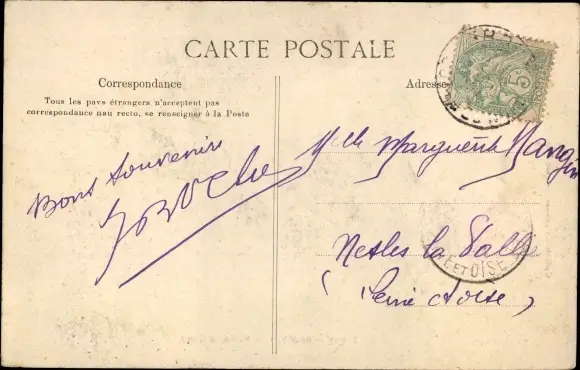 CARTE POSTALE
Correspondance
Tous les pays étrangers n'acceptent pas
correspondance nau recto, se renseigner à la Poste
Adresse
5
Bons souvenirs
Mlle Marguerite Mangin
Nesles la Vallée
(Seine et Oise)
ET OISE